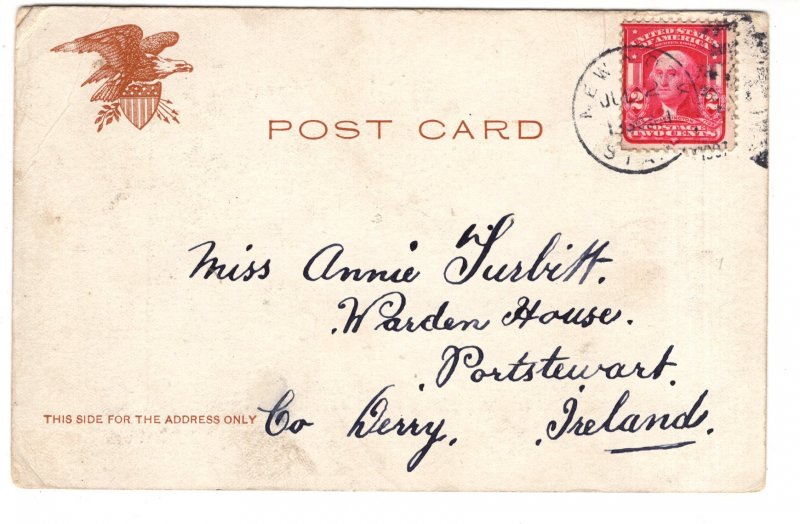 POST CARD
UNITED STATES
OF AMERICA
2 2
POSTAGE
TWO CENTS
NEW
1907
Miss Annie Turbitt.
Warden House.
Portstewart.
THIS SIDE FOR THE ADDRESS ONLY
Co Derry, Ireland.